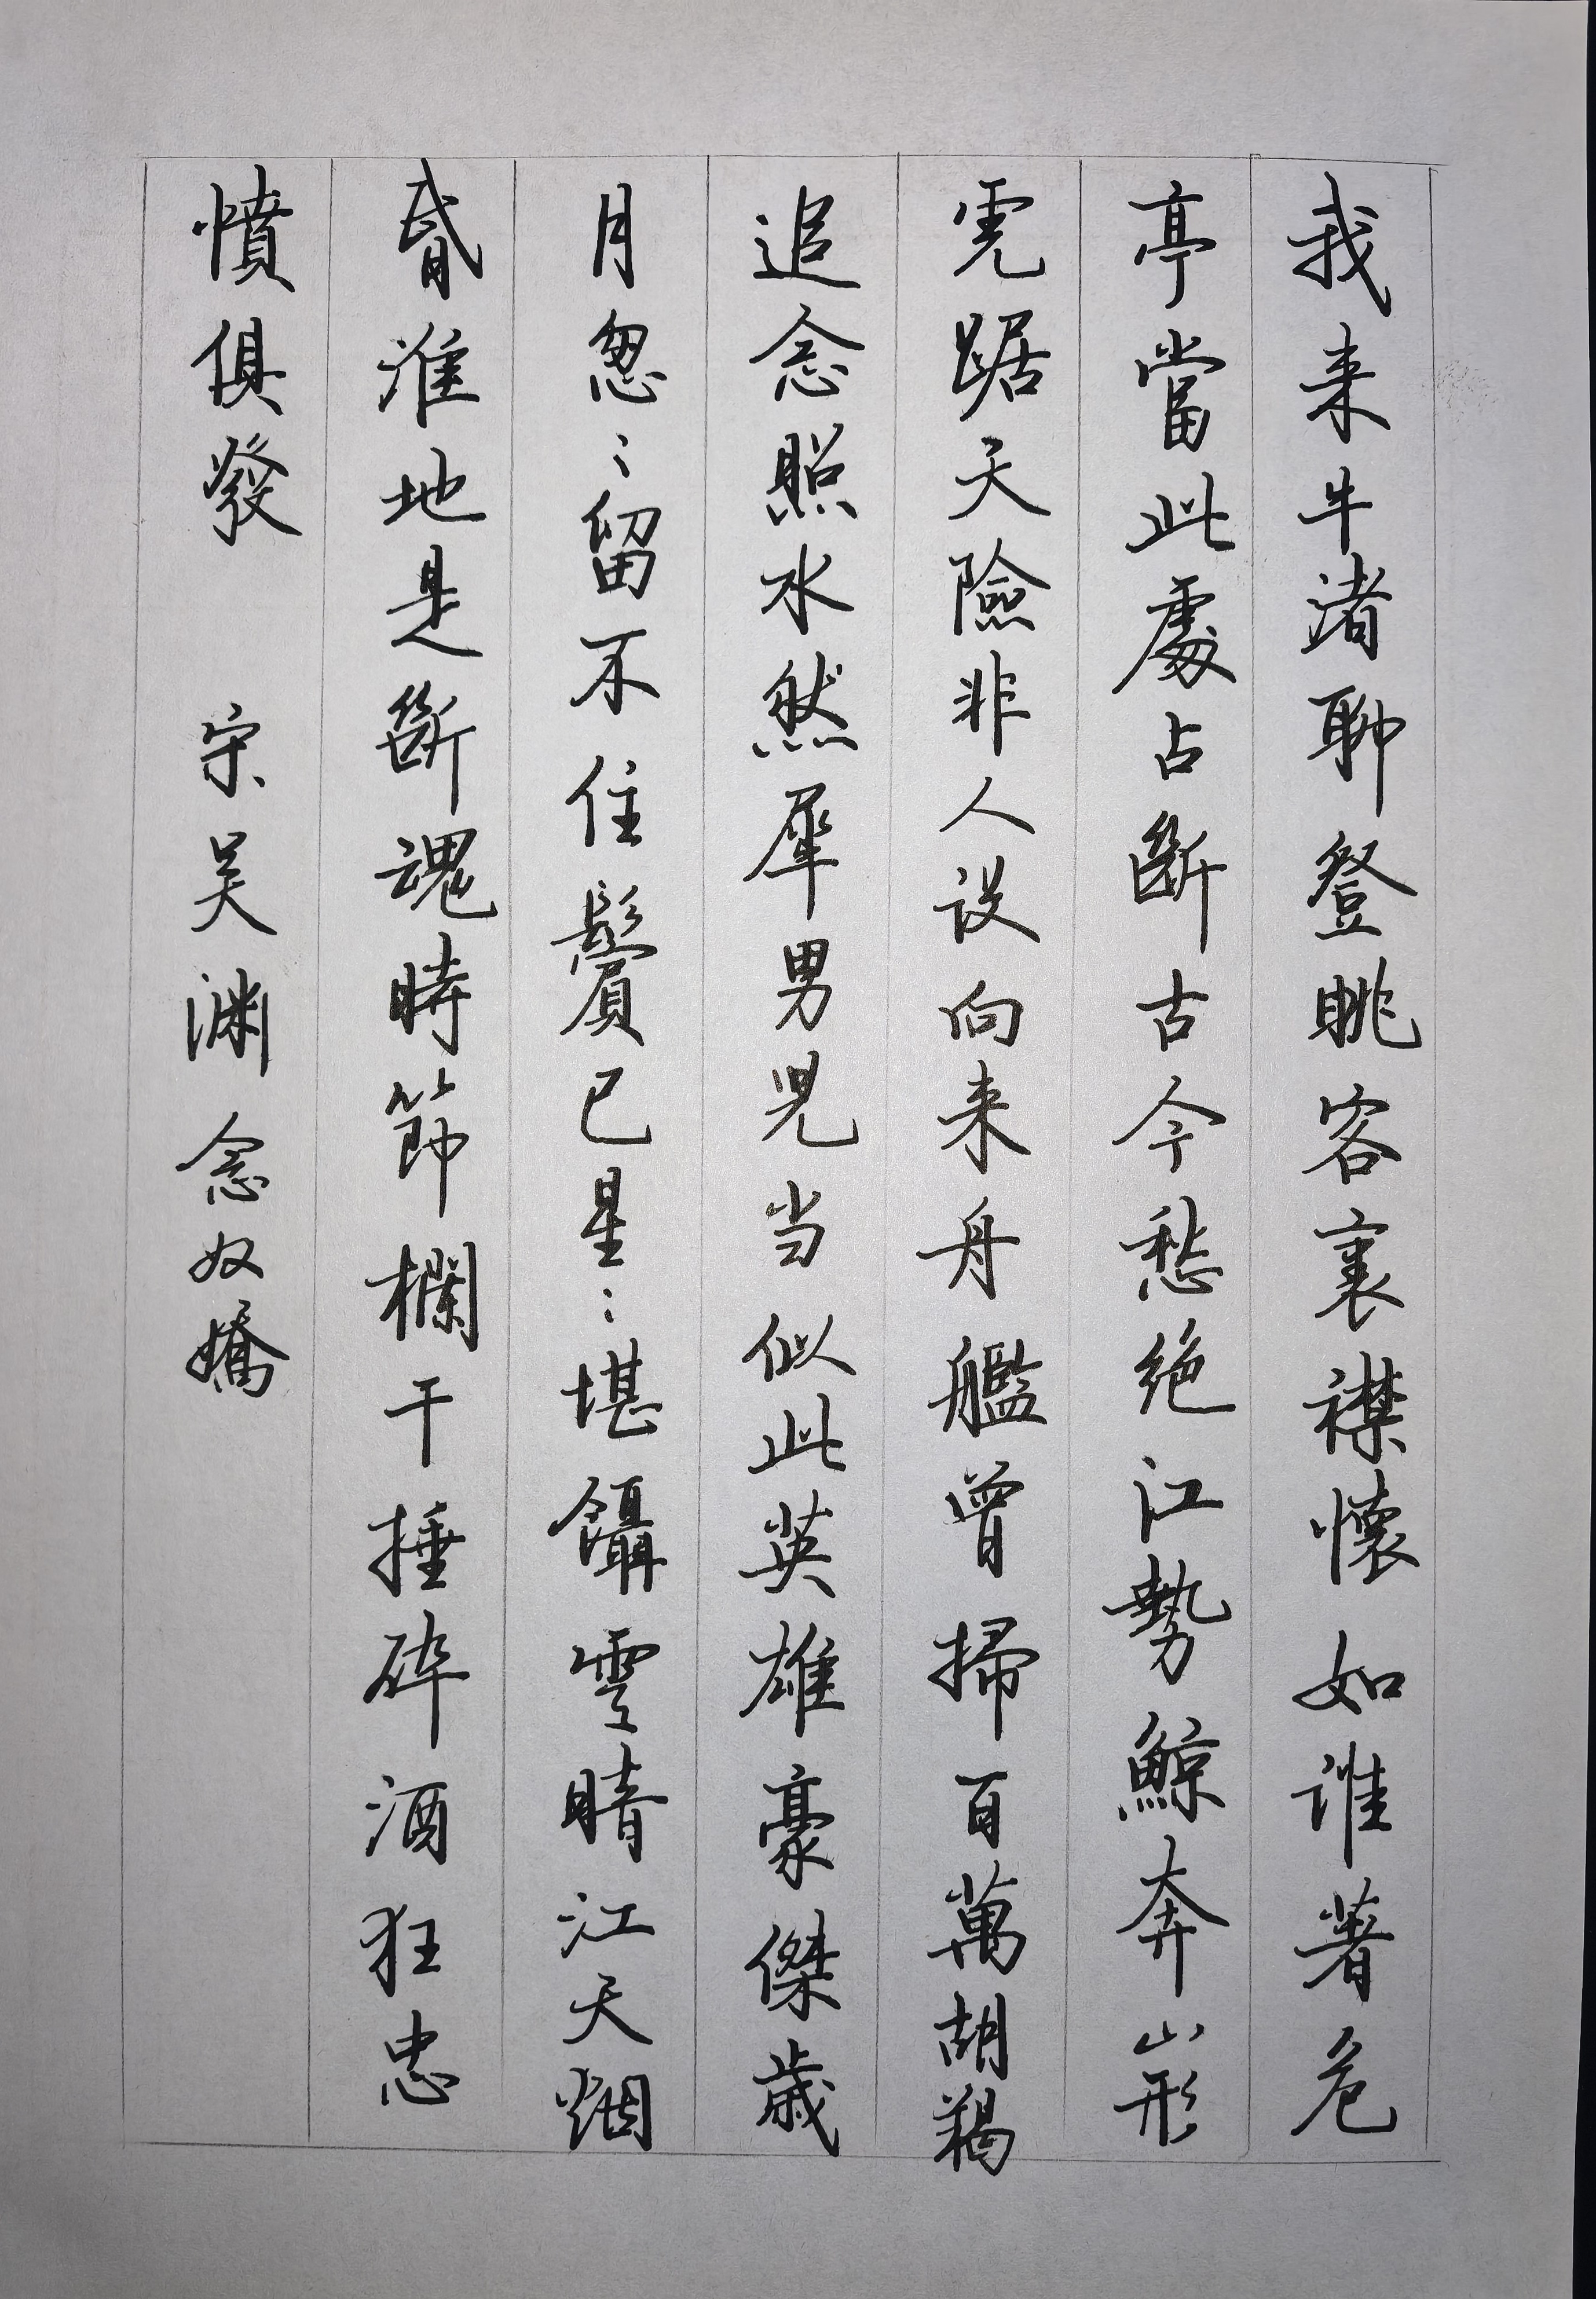 我来牛渚聊登眺客裏襟懷如谁著危
亭當此處占斷古今愁绝江勢鯨奔山形
虎踞天險非人设向来舟艦曾掃百萬胡羯
追念照水然犀男児当似此英雄豪傑歳
月怱〻留不住鬢已星〻堪鑷雲晴江天烟
昏淮地是斷魂時節欄干捶碎酒狂忠
憤俱發 宋吴渊念奴嬌